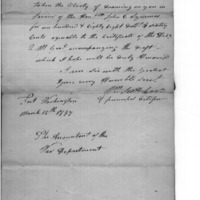 taken the liberty of drawing on you in
favour of the Hon. John C. Symmes
for one hundred & Eighty Eight Doll. & ninety
Cents agreeable to the Certificate of the D.
Q. M. Gen. accompanying the draft
which I hope will be duly honor'd
I am Sir with the greatest
your very Humble serv.
Fort Washington
March 12th 1793
The Accountant of the
War Department